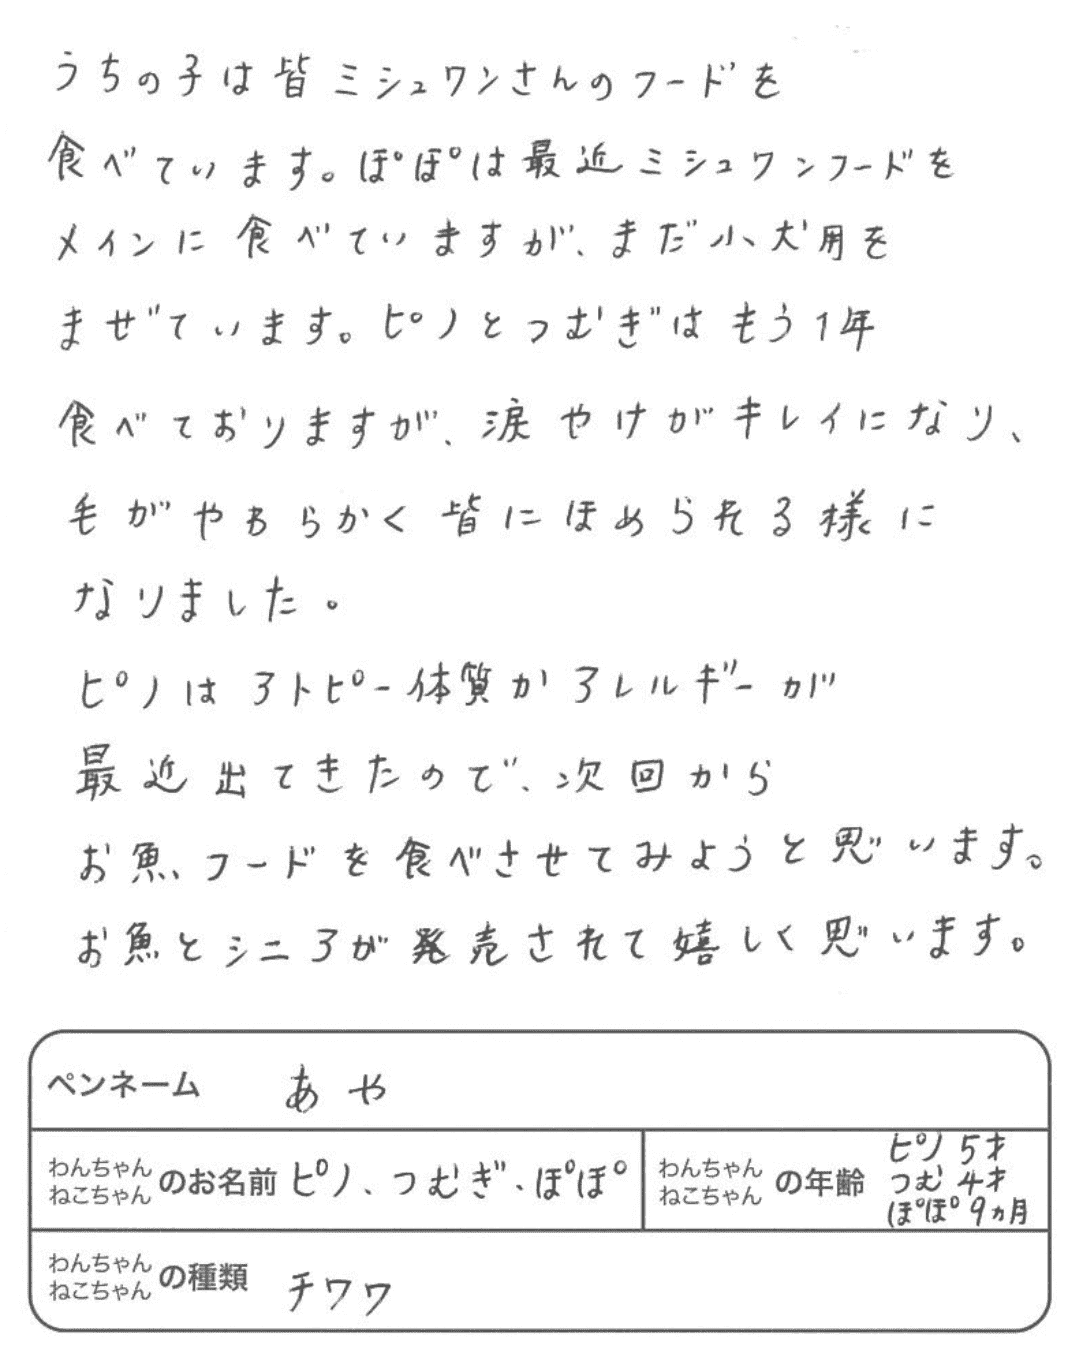 うちの子は皆ミシュワンさんのフードを
食べています。ぽぽは最近ミシュワンフードを
メインに食べていますが、まだ小犬用を
まぜています。ピノとつむぎはもう1年
食べておりますが、涙やけがキレイになり、
毛がやわらかく皆にほめられる様に
なりました。
ピノはアトピー体質かアレルギーが
最近出てきたので、次回から
お魚フードを食べさせてみようと思います。
お魚とシニアが発売されて嬉しく思います。
ペンネーム あや
わんちゃん ねこちゃん のお名前 ピノ、つむぎ、ぽぽ
わんちゃん ねこちゃん の年齢 ピノ 5才
つむ 4才
ぽぽ 9ヵ月
わんちゃん ねこちゃん の種類 チワワ